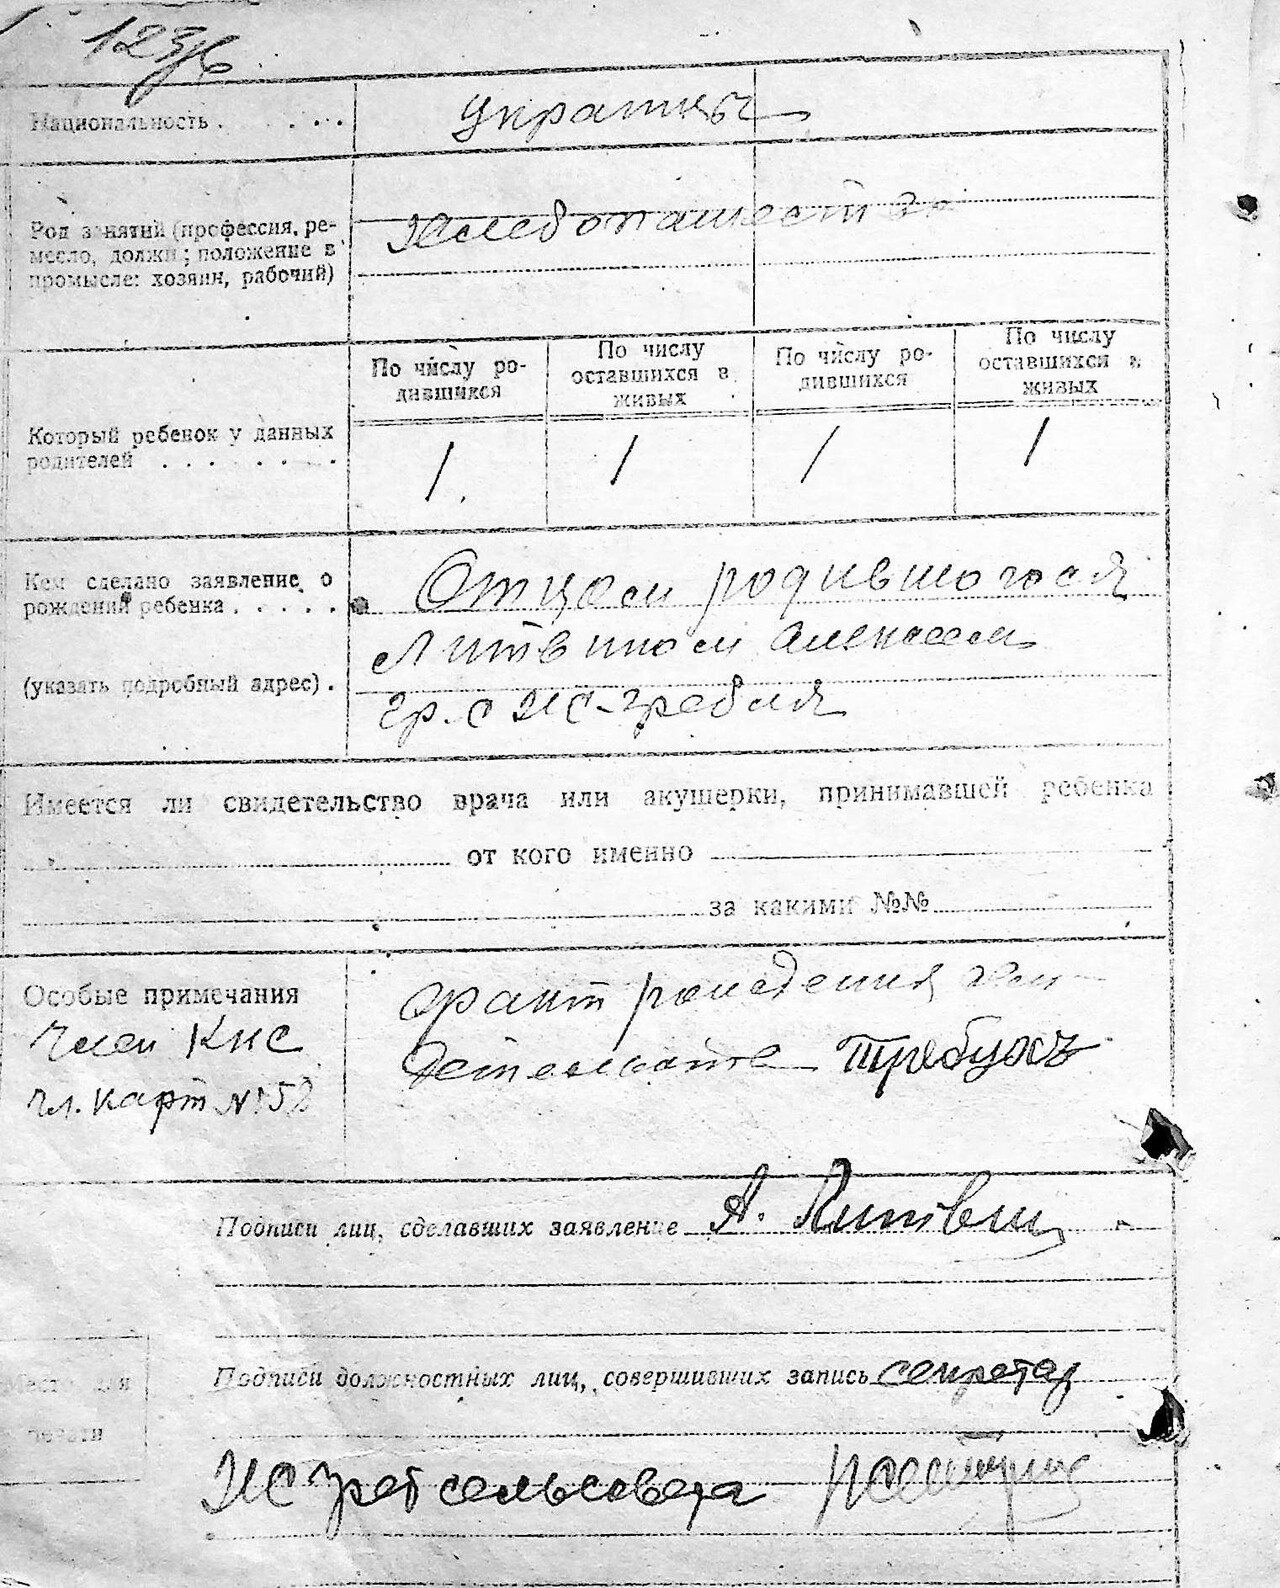 Национальность
украинцы
Род занятий (профессия, ре-
месло, должн; положение в
промысле: хозяин, рабочий)
Хлебопашество
По числу ро-
дившихся
По числу
оставшихся в
живых
По числу ро-
дившихся
По числу
оставшихся в
живых
Который ребенок у данных
родителей
1. 1 1 1
Кем сделано заявление о
рождении ребенка
(указать подробный адрес).
Отцом родившогося
Литвином Алексеем
гр. с
Имеется ли свидетельство врача или акушерки, принимавшей ребенка
от кого именно
за какими №№
Особые примечания
Член КНС
чл. карт №
факт рождения
Подписи лиц, сделавших заявление А. Литвин
Место для
печати
Подписи должностных лиц, совершивших запись секретар
сельсовета